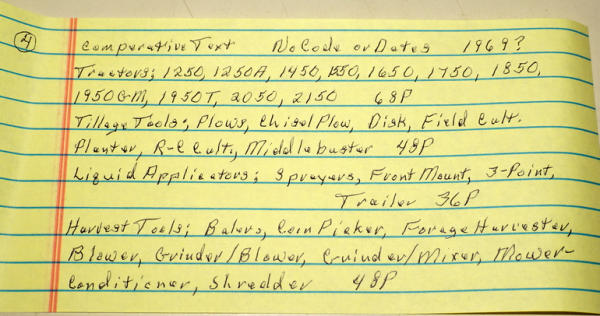 4
Comparative Text No Code or Dates 1969?
Tractors; 1250, 1250A, 1450, 1550, 1650, 1750, 1850,
1950GM, 1950T, 2050, 2150 68P
Tillage Tools; Plows, Chisel Plow, Disk, Field Cult.
Planter, R-C Cult, Middlebuster 48P
Liquid Applicators; Sprayers, Front Mount, 3-Point,
Trailer 36P
Harvest Tools; Balers, Corn Picker, Forage Harvester,
Blower, Grinder/Blower, Grinder/Mixer, Mower-
Conditioner, Shredder 48P